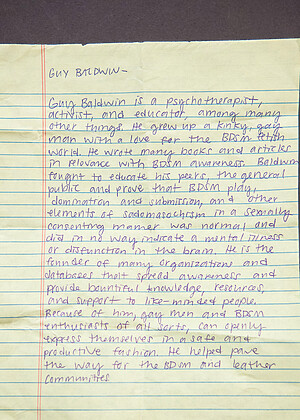 GUY BALDWIN-
Guy Baldwin is a psychotherapist,
activist, and educator, among many
other things. He grew up a kinky, gay
man with a love for the BDSM fetish
world. He wrote many books and articles
in relevance with BDSM awareness. Baldwin
fought to educate his peers, the general
public and prove that BDSM play,
domination and submission, and other
elements of sadomasochism in a sexually
consenting manner was normal and
did in no way indicate a mental illness
or disfunction in the brain. He is the
founder of many organizations and
databases that spread awareness and
provide bountiful knowledge, resources,
and support to like-minded people.
Because of him, gay men and BDSM
enthusiasts of all sorts, can openly
express themselves in a safe and
productive fashion. He helped pave
the way for the BDSM and leather
communities